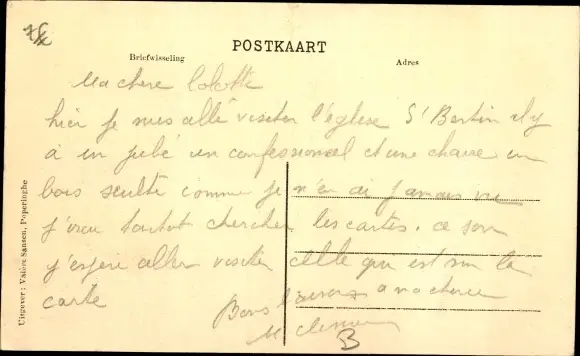 POSTKAART
Briefwisseling
Adres
Ma chere Colotte
hier je suis allé visiter l'église St Bertin il y
a un jubé un confessionnel et une chaire en
bois sculté comme je n'en ai jamais vu
j'irai tantot chercher les cartes. ce soir
j'espere aller visiter celle qui est sur la
carte
Bons baisers a ma cherie
Uitgever: Valère Sansen, Poperinghe